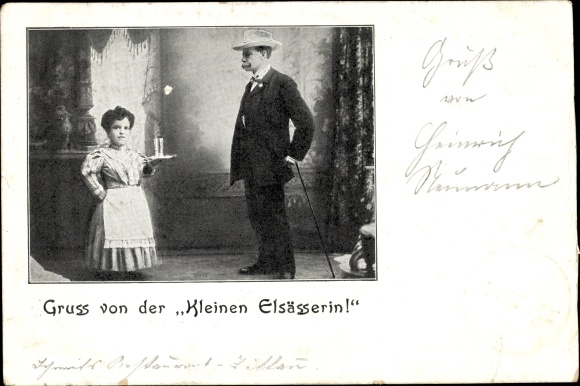 Gruß
von
Heinrich
Neumann
Gruss von der „Kleinen Elsässerin!“
Restaurant - Zittau.